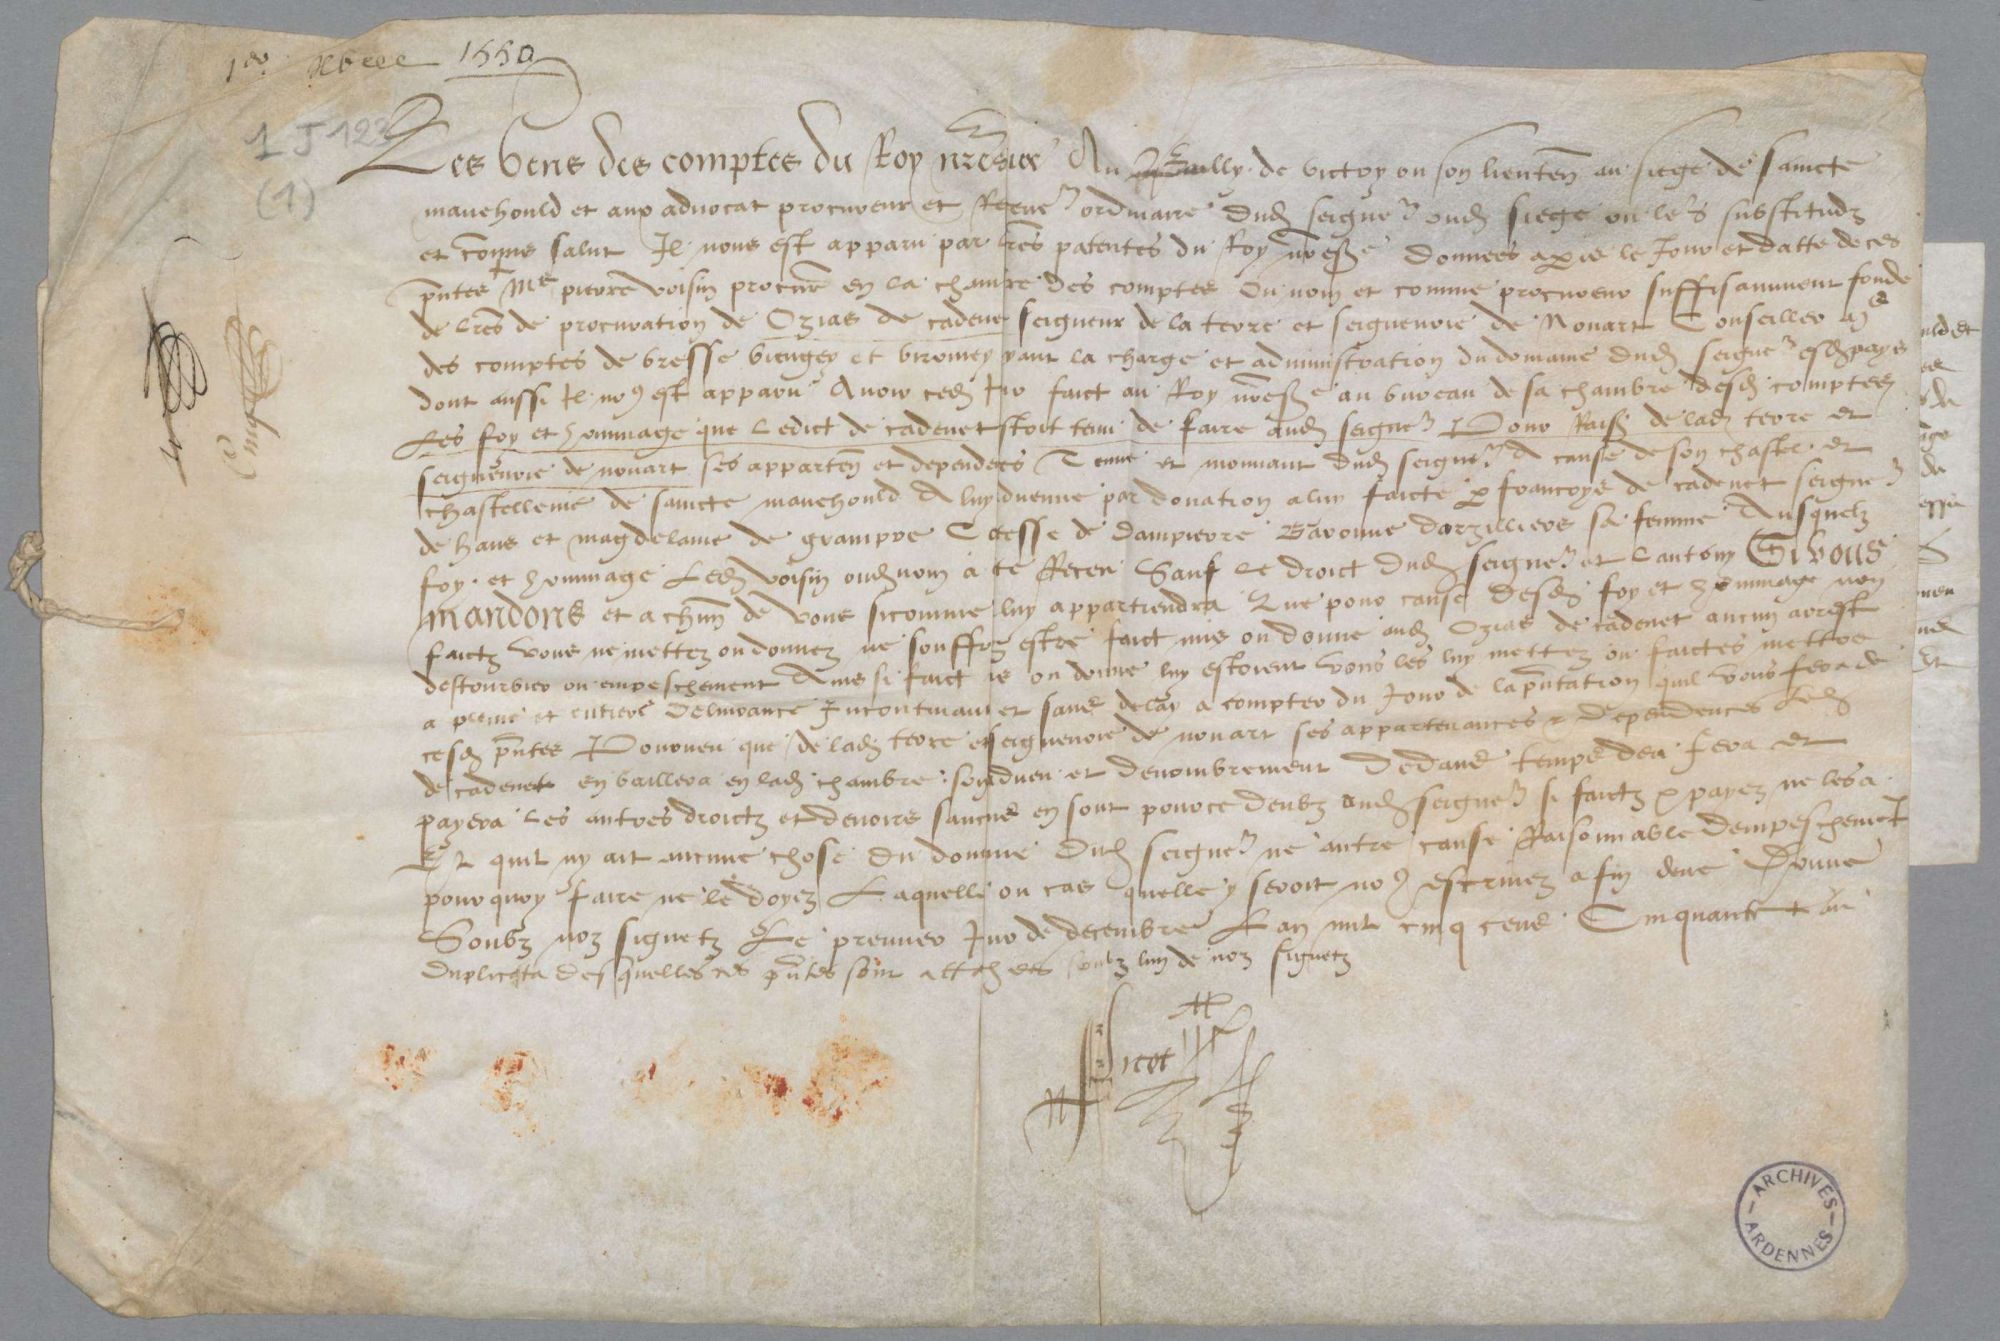 1er Xbre 1550
1 J 123
(1)
Les Gens des comptes du Roy nre sire Au Bailly de victry ou son lieuten au siege de saincte
manehould et aux advocat procureur et Recev ordinaire dud seigneur oud siege ou leurs substitudz
et comis salut Il nous est apparu par lres patentes du Roy nre sire donnees a paris le Jour et datte de ces
pntes Me pierre voisin procur en la chambre des comptes Ou nom et comme procureur suffisamment fonde
de lres de procuration de Ozias de cadenet seigneur de la terre et seigneurie de Nouart Conseiller
des comptes de bresse beugey et veromey yant la charge et administration du domaine dud seigneur esd pays
dont aussi Il no9 est apparu Avoir ced Jor faict au Roy nre sire au bureau de sa chambre desd comptes
Les foy et hommage que ledict de cadenet estoit tenu de faire aud seigneur Pour Raison de lad terre et
seigneurie de nouart ses apparten et dependces Tenue et mouvant dud seigneur A cause de son chastel et
chastellenie de saincte manehould A luy advenue par donation a luy faicte p francoys de cadenet seigneur
de hans et magdelaine de grampre Ctesse de dampierre Baronne darzillieres sa femme Ausquelz
foy et hommage Led voisin oud nom a este Receu Sauf le droict dud seigneur et lautruy Si vous
mandons et a chun de vous sicomme luy appartiendra Que pour cause desd foy et hommage non
faictz vous ne mettez ou donnez ne souffrez estre faict mis ou donne aud Ozias de cadenet aucun arrest
destourbier ou empeschement Ains si faict mis ou donne luy estoient vous les luy mettez ou faictes mettre
a pleine et entiere delivrance Incontinant et sans delay a compter du Jour de la pntation quil vous fera de
cesd pntes Pourveu que de lad terre et seigneurie de nouart ses appartenances et dependences Led
de cadenet en baillera en lad chambre son adveu et denombrement dedans temps deu fera et
payera les autres droictz et devoirs saucuns en sont pource deubz aud seigneur si faictz et payez ne les a
Et quil ny ait aucune chose du domaine dud seigneur ne autre cause Raisonnable dempeschemet
pourquoy faire ne le doyez Laquelle ou cas quelle y seroit no9 escrivez a fin deue Donne
Soubz noz signetz Le premier Jor de decembre Lan mil cinq cens Cinquante
duplicata desquelles ces pntes sont attachees soubz lun de noz signetz
ARCHIVES
ARDENNES